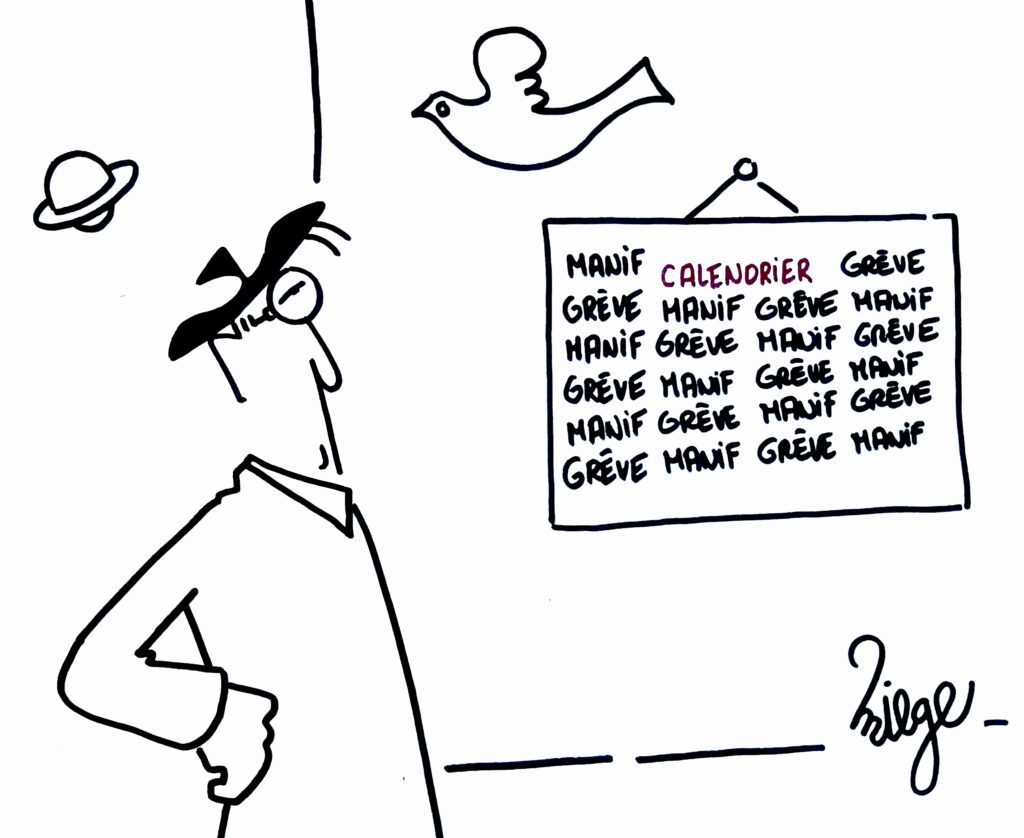 MANIF CALENDRIER GRÈVE
GRÈVE MANIF GRÈVE MANIF
MANIF GRÈVE MANIF GRÈVE
GRÈVE MANIF GRÈVE MANIF
MANIF GRÈVE MANIF GRÈVE
GRÈVE MANIF GRÈVE MANIF
Miege